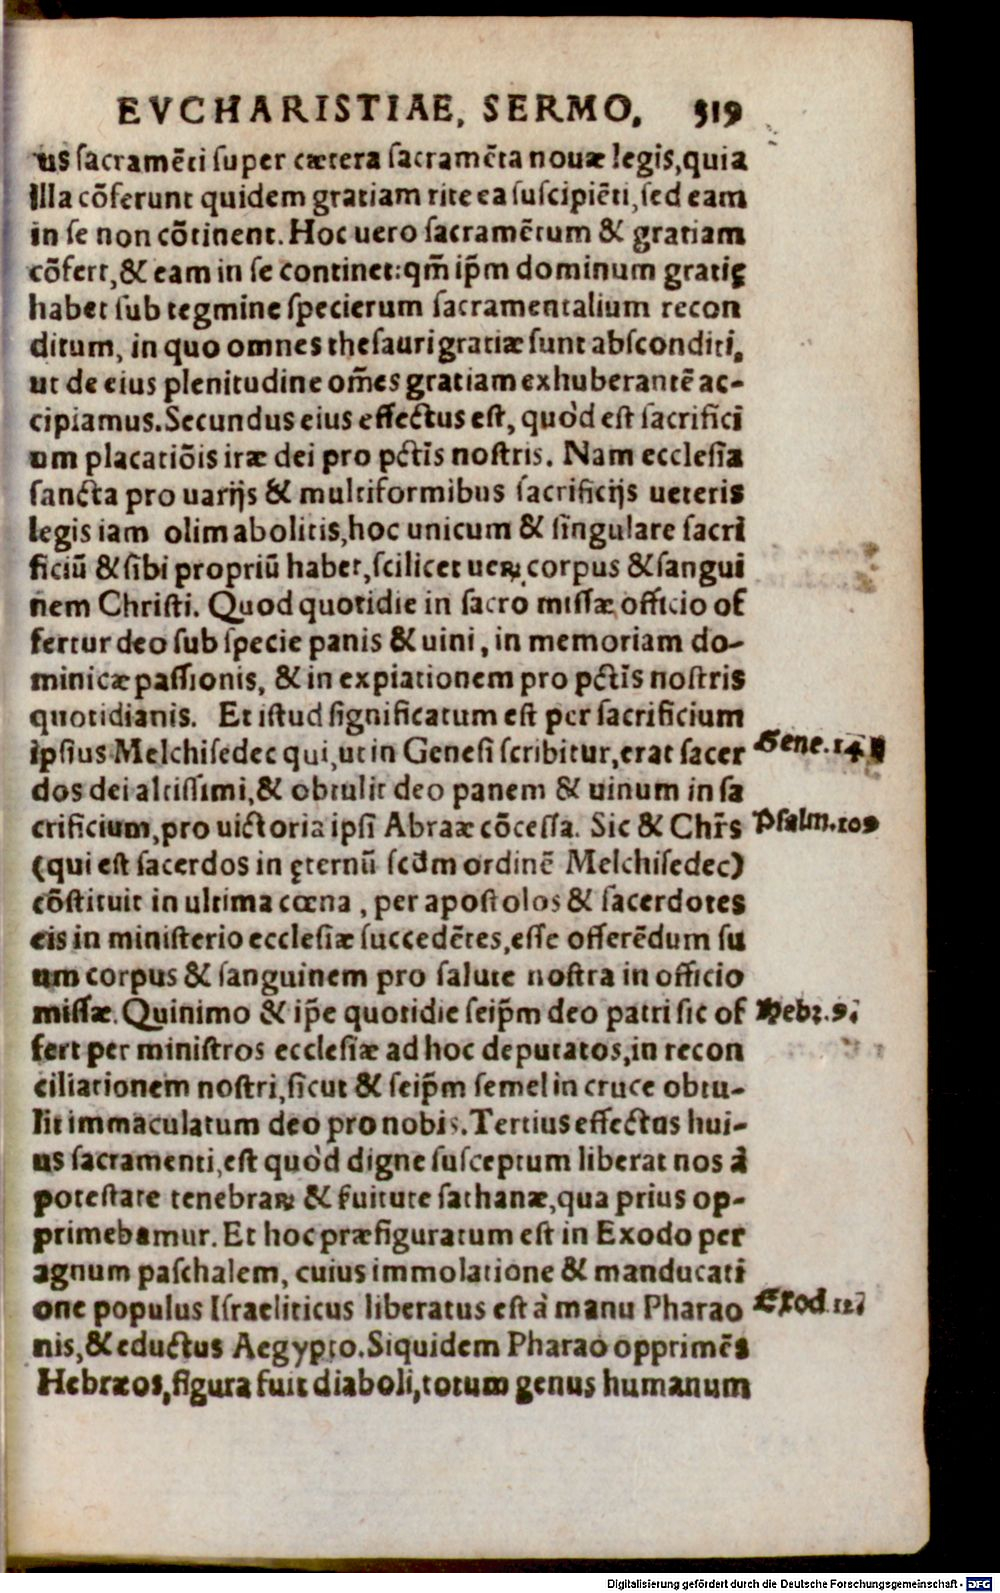 EVCHARISTIAE, SERMO. 319
us sacramẽti super cætera sacramẽta nouæ legis, quia
illa cõferunt quidem gratiam rite ea suscipiẽti, sed eam
in se non cõtinent. Hoc uero sacramẽtum & gratiam
cõfert, & eam in se continet: qm̃ ip̃m dominum gratię
habet sub tegmine specierum sacramentalium recon
ditum, in quo omnes thesauri gratiæ sunt absconditi,
ut de eius plenitudine om̃es gratiam exhuberantẽ ac-
cipiamus. Secundus eius effectus est, quòd est sacrifici
um placatiõis iræ dei pro pct̃is nostris. Nam ecclesia
sancta pro uarijs & multiformibus sacrificijs ueteris
legis iam olim abolitis, hoc unicum & singulare sacri
ficiũ & sibi propriũ habet, scilicet ueꝝ corpus & sangui
nem Christi. Quod quotidie in sacro missæ officio of
fertur deo sub specie panis & uini, in memoriam do-
minicæ passionis, & in expiationem pro pct̃is nostris
quotidianis. Et istud significatum est per sacrificium
ipsius Melchisedec qui, ut in Genesi scribitur, erat sacer
Gene. 14
dos dei altissimi, & obtulit deo panem & uinum in sa
crificium, pro uictoria ipsi Abraæ cõcessa. Sic & Chr̃s
Psalm. 109
(qui est sacerdos in ęternũ scd̃m ordinẽ Melchisedec)
cõstituit in ultima cœna, per apostolos & sacerdotes
eis in ministerio ecclesiæ succedẽtes, esse offerẽdum su
um corpus & sanguinem pro salute nostra in officio
missæ. Quinimo & ip̃e quotidie seip̃m deo patri sic of
Hebr. 9.
fert per ministros ecclesiæ ad hoc deputatos, in recon
ciliationem nostri, sicut & seip̃m semel in cruce obtu-
lit immaculatum deo pro nobis. Tertius effectus hui-
us sacramenti, est quòd digne susceptum liberat nos à
potestate tenebraꝝ & fuitute sathanæ, qua prius op-
primebamur. Et hoc præfiguratum est in Exodo per
agnum paschalem, cuius immolatione & manducati
one populus Israeliticus liberatus est à manu Pharao
Exod. 12.
nis, & eductus Aegypto. Siquidem Pharao opprimẽs
Hebræos, figura fuit diaboli, totum genus humanum
Digitalisierung gefördert durch die Deutsche Forschungsgemeinschaft - DFG